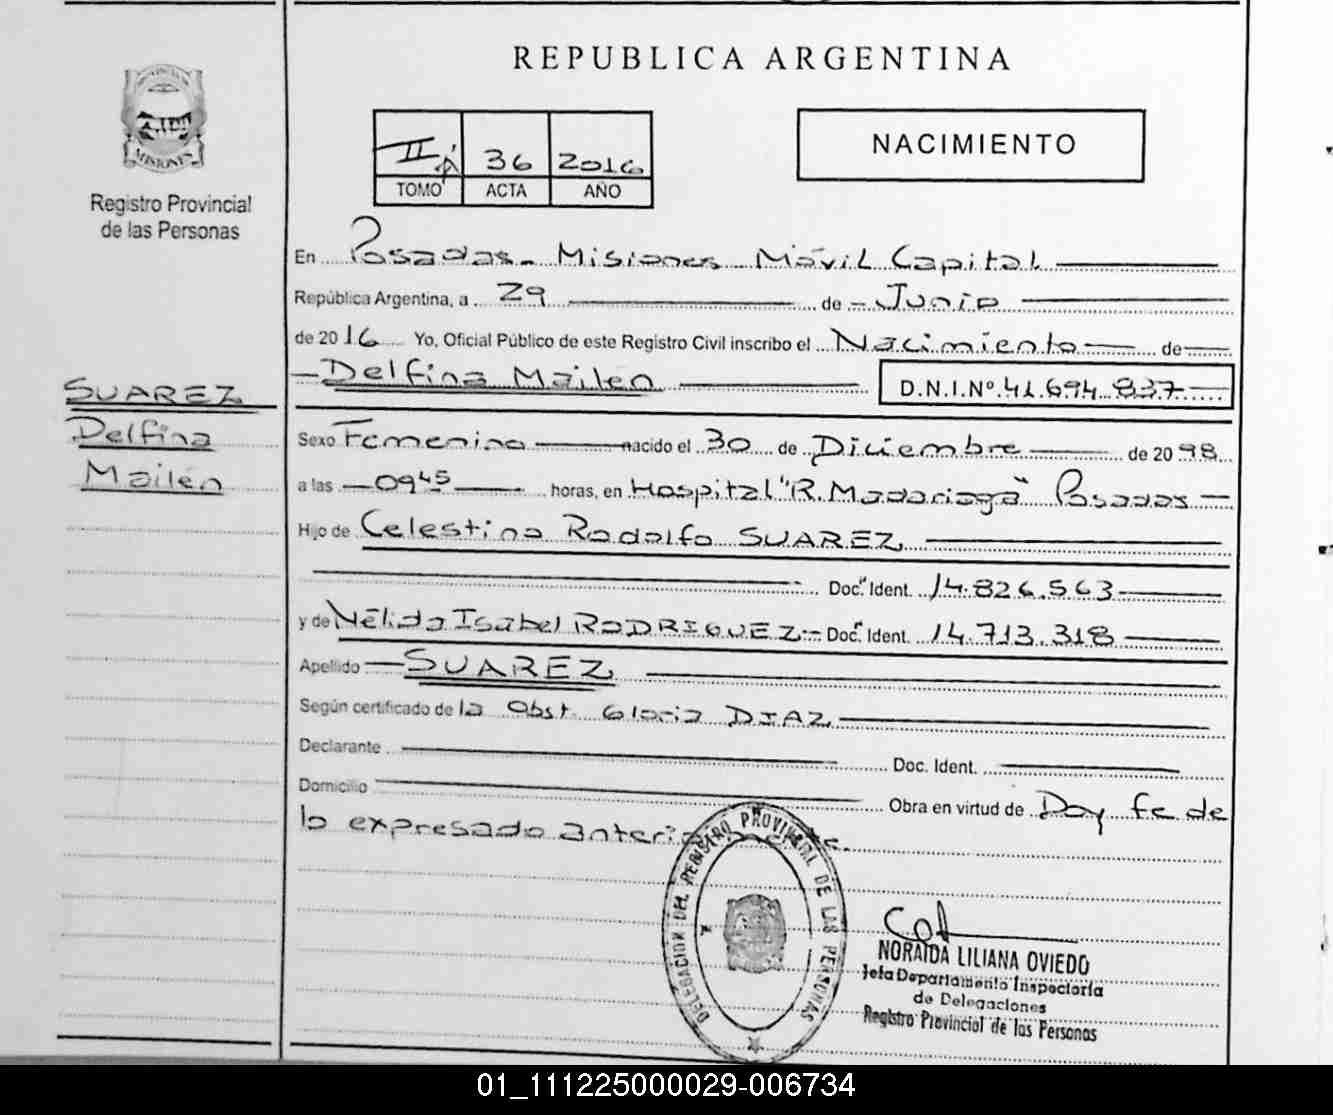 REPUBLICA ARGENTINA
MISIONES
Registro Provincial
de las Personas
II 36 2016
TOMO ACTA AÑO
NACIMIENTO
En Posadas - Misiones - Móvil Capital
República Argentina, a 29 de Junio
de 2016 Yo, Oficial Público de este Registro Civil inscribo el Nacimiento de
Delfina Mailen D.N.I.Nº 41.694.837
SUAREZ
Delfina
Mailen
Sexo Femenino nacido el 30 de Diciembre de 2098
a las 0945 horas, en Hospital "R. Madariaga" Posadas
Hijo de Celestino Rodolfo SUAREZ
Doc. Ident. 14.826.563
y de Nélida Isabel RODRIGUEZ Doc. Ident. 14.713.318
Apellido SUAREZ
Según certificado de la Obst. Gloria DIAZ
Declarante Doc. Ident.
Domicilio Obra en virtud de Doy fe de
lo expresado
DELEGACION DEL REGISTRO PROVINCIAL DE LAS PERSONAS
NORAIDA LILIANA OVIEDO
Jefa Departamento Inspectoria
de Delegaciones
Registro Provincial de las Personas
01_111225000029-006734